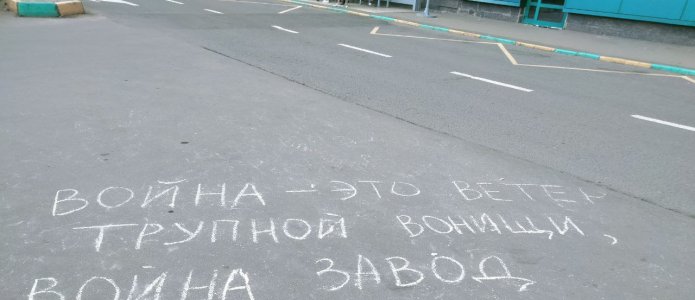 ВОЙНА - ЭТО ВЕТЕР
ТРУПНОЙ ВОНИЩИ,
ВОЙНА ЗАВОД